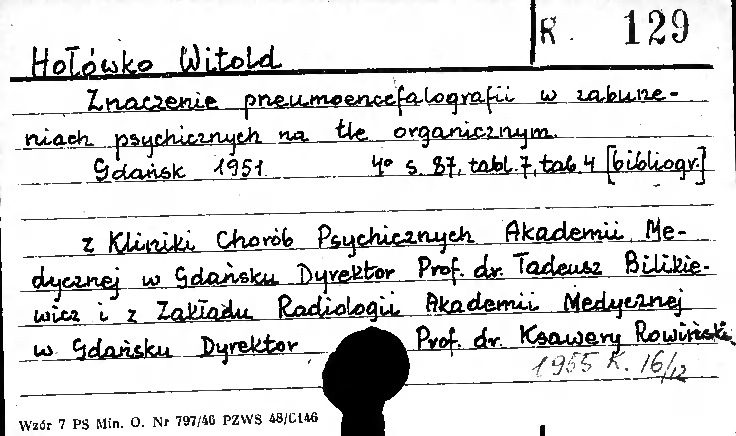 R. 129
Hołówko Witold
Znaczenie pneumoencefalografii w zaburze-
niach psychicznych na tle organicznym.
Gdańsk 1951. 4° s. 87, tabl. 7, tab. 4 [bibliogr.]
z Kliniki Chorób Psychicznych Akademii Me-
dycznej w Gdańsku Dyrektor Prof. dr. Tadeusz Bilikie-
wicz i z Zakładu Radiologii Akademii Medycznej
w Gdańsku Dyrektor Prof. dr. Ksawery Rowiński.
1955 K. 16/12
Wzór 7 PS Min. O. Nr 797/46 PZWS 48/C146